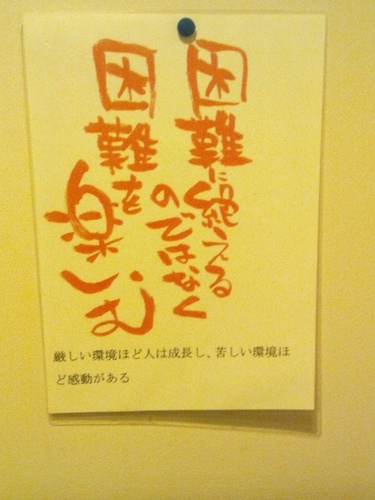 困難に絶える
のではなく
困難を
楽しむ
厳しい環境ほど人は成長し、苦しい環境ほ
ど感動がある